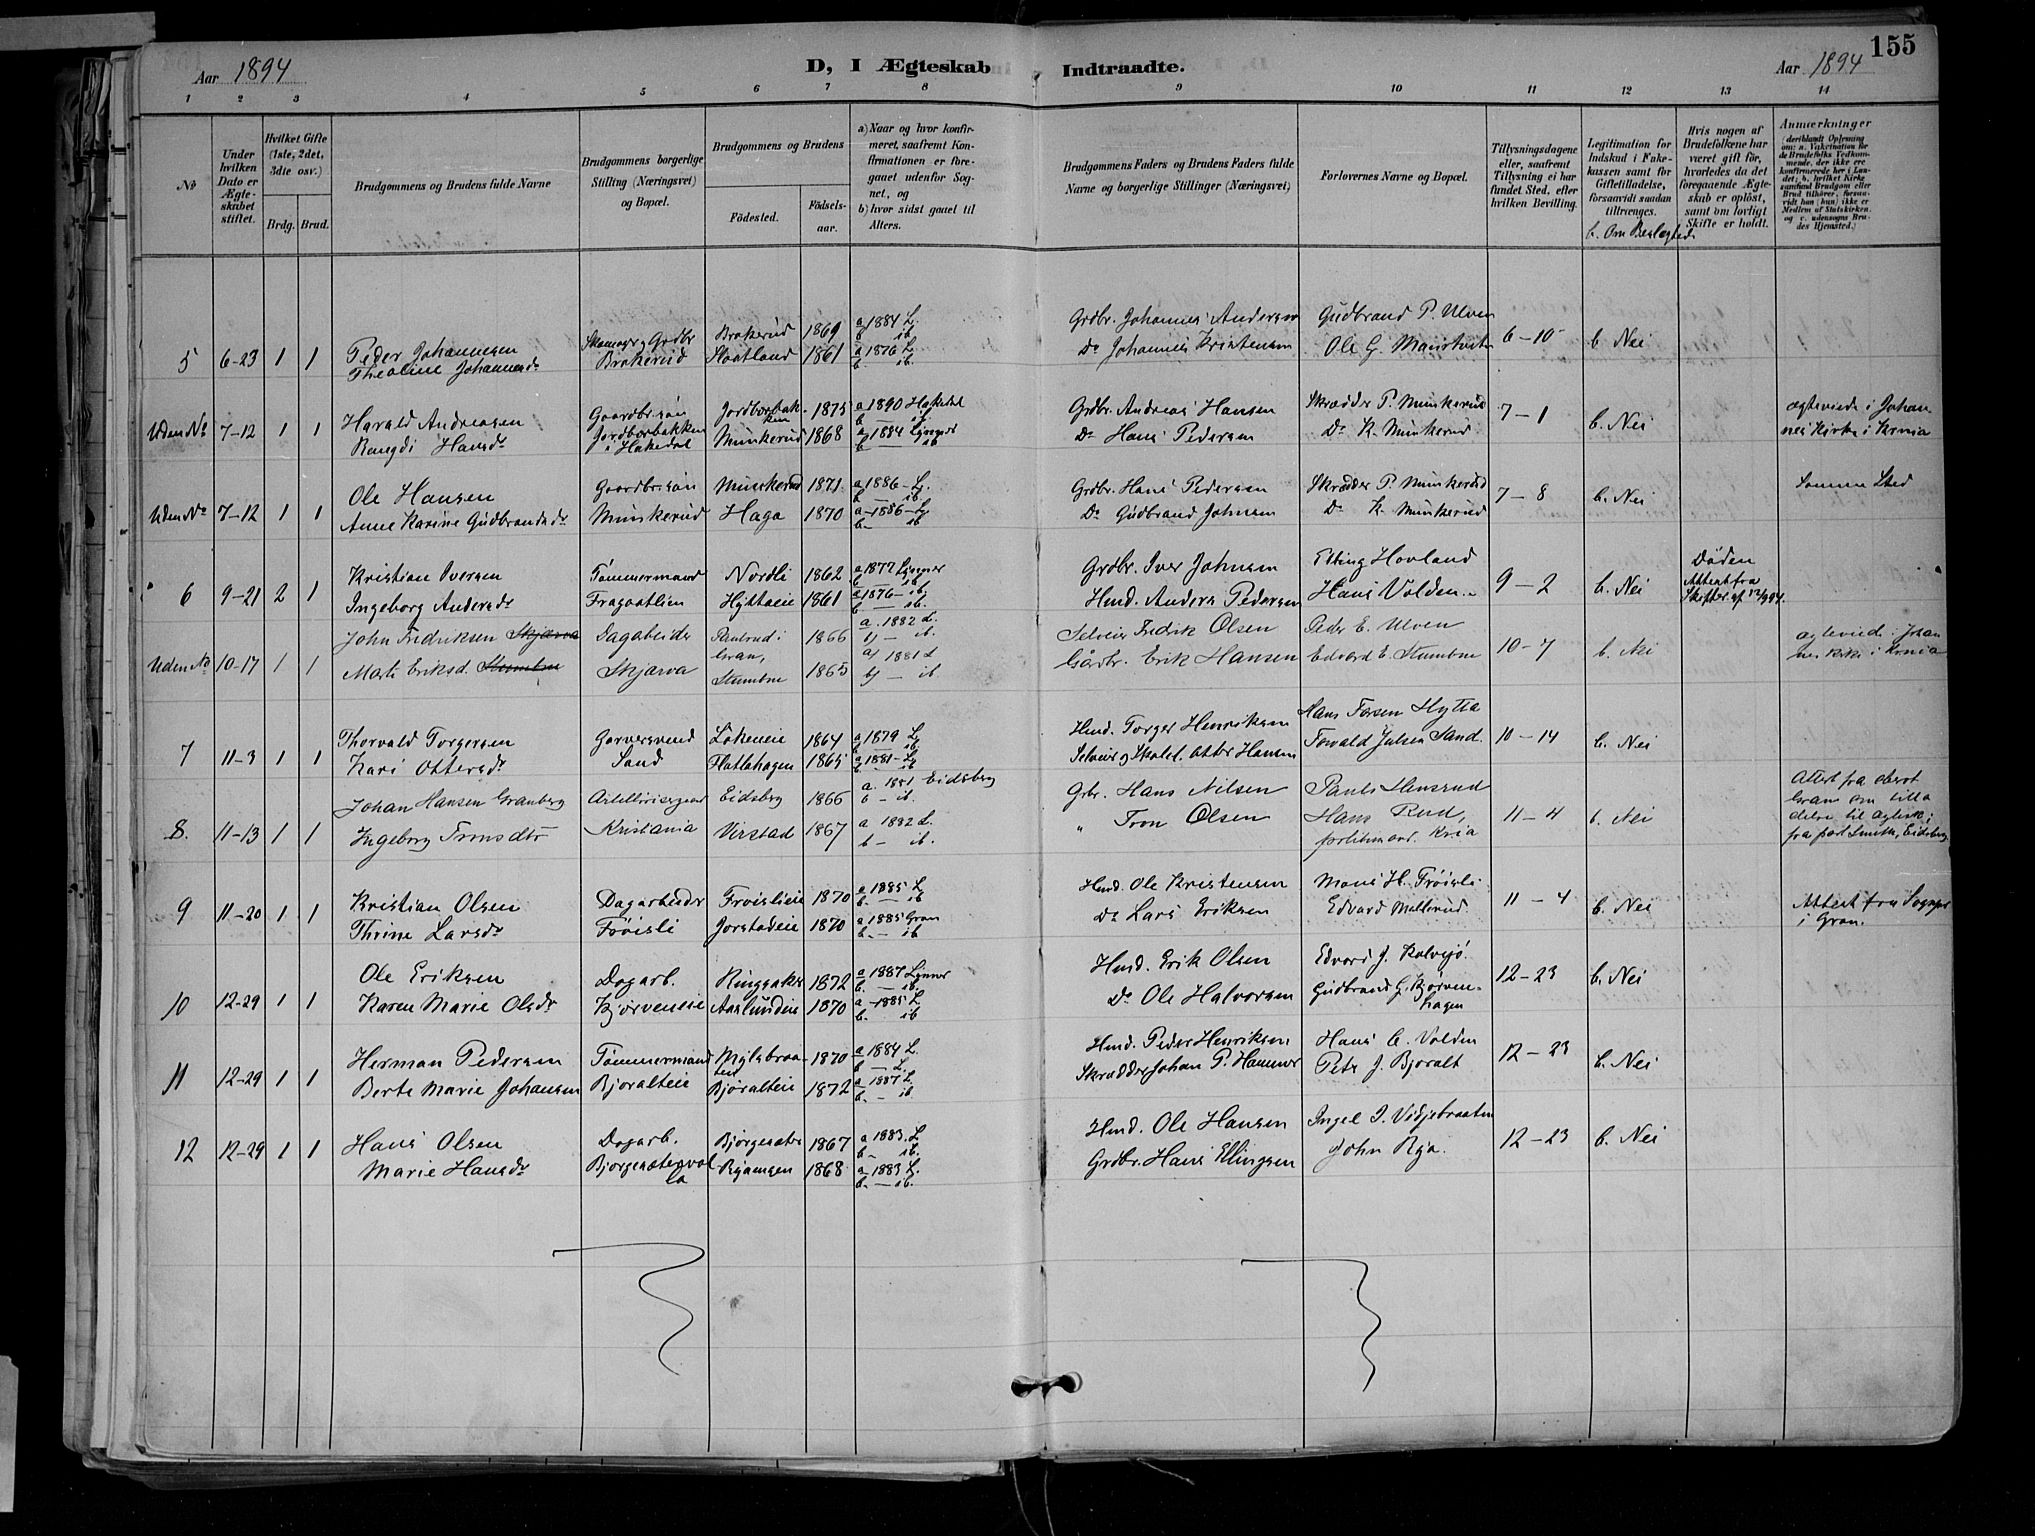 155
Aar 1894
D, I Ægteskab Indtraadte.
Aar 1894
1 2 3 4 5 6 7 8 9 10 11 12 13 14
No
Under hvilken Dato er Ægteskabet stiftet.
Hvilket Gifte (1ste, 2det, 3dte osv.)
Brdg. Brud.
Brudgommens og Brudens fulde Navne
Brudgommens borgerlige Stilling (Næringsvei) og Bopæl.
Brudgommens og Brudens
Födested.
Födselsaar.
a) Naar og hvor konfirmeret, saafremt Konfirmationen er foregaaet udenfor Sognet, og
b) hvor sidst gaaet til Alters.
Brudgommens Faders og Brudens Faders fulde Navne og borgerlige Stillinger (Næringsvei)
Forlovernes Navne og Bopæl.
Tillysningsdagene eller, saafremt Tillysning ei har fundet Sted, efter hvilken Bevilling.
Legitimation for Indskud i Enkekassen samt for Giftetilladelse, forsaavidt saadan tiltrænges.
b. Om Beslægtede
Hvis nogen af Brudefolkene har været gift för, hvorledes da det foregaaende Ægteskab er oplöst, samt om lovligt Skifte er holdt.
Anmærkninger
(deriblandt Oplysning om: a. Vakcination for de Brudefolks Vedkommende, der ikke ere konfirmerede her i Landet; b. hvilket Kirkesamfund Brudgom eller Brud tilhörer, forsaavidt han (hun) ikke er Medlem af Statskirken, og c. udensogns Brudes Hjemsted.)
5 6-23 1 1 Peder Johannesen Grdbr Brokerud 1869 a 1884 L. Grdbr. Johannes Andersen Gudbrand P. Ulven 6-10 b. Nei
Theoline Johannesdr Brokerud Haatland 1861 a 1876 L. b. ib. Do Johannes Kristensen Ole G.
Uden No 7-12 1 1 Harald Andreasen Gaardbr.søn Jordborbakken 1875 a 1890 Hakedal Grdbr. Andreas Hansen Skrædder P. Munkerud 7-1 b. Nei ægteviede i Johannes Kirke i Krnia
Rangdi Hansdr Jordborbakken i Hakedal Munkerud 1868 a 1884 Lunner b — ib Do Hans Pedersen Do K. Munkerud
Uden No 7-12 1 1 Ole Hansen Gaardbr.søn Munkerud 1871 a 1886 - L. b — ib. Grdbr. Hans Pedersen Skrædder P. Munkerud 7-8 b. Nei Samme Sted
Anne Karine Gudbrandsdr Munkerud Haga 1870 a - 1886 - L. b - ib Do Gudbrand Johnsen Do K. Munkerud
6 9-21 2 1 Kristian Iversen Tømmermand Nordli 1862 a 1877 Lunner b — ib. Grdbr. Iver Johnsen Elling Hovland 9-2 b. Nei Døden Attest fra Skifter. af 12/9 94.
Ingeborg Andersdr Fragaatlien Hyttaeie 1861 a 1876 - ib b — ib. Hmd. Anders Pedersen Hans Volden
Uden No 10-17 1 1 John Fredriksen Skjærva Dagabeider Paulrud i Gran, 1866 a. 1882 L. b) — ib. Selveier Fredrik Olsen Peder E. Ulven 10-7 b. Nei ægteviede i Johannes kirke i Krnia
Marte Eriksd. Stumbne Skjærva Stumbne 1865 a) 1881 L b) — ib. Gårbr. Erik Hansen Edvard E. Stumbne
7 11-3 1 1 Thorvald Torgersen Garversvend Løkeneie 1864 a 1879 L. b — ib. Hmd. Torger Henriksen Hans Hytta 10-14 b. Nei
Kari Ottersdr Sand Flatlahagen 1865 a 1881 - L b — ib. Selveier og Skolel. Otter Hansen Towald Julsen Sand.
8. 11-13 1 1 Johan Hansen Granberg Artellerisergeant Eidsberg 1866 a. 1881 Eidsberg b — ib. Grbr. Hans Nilsen Paul Hansrud 11-4 b. Nei
Ingeborg Tronsdtr Kristiania Virstad 1867 a 1882 L. b — ib. " Tron Olsen Hans Rud, politimand. Kria
9 11-20 1 1 Kristian Olsen Dagarbeider Frøislieie 1870 a 1885 L b. — ib Hmd. Ole Kristensen Mons H. Frøisli 11-4 b. Nei Attest fra Sognepr i Gran.
Thrine Larsdr Frøisli Jorstadeie 1870 a 1885 Gran b. — ib Do Lars Eriksen Edvard Mellerud.
10 12-29 1 1 Ole Eriksen Dagarb. Ringsaker 1872 a 1887 Lunner b. — ib Hmd. Erik Olsen Edvard J. Kalvsjø 12-23 b. Nei
Karen Marie Olsdr Kjørveneie Aaslundeie 1870 a - 1885 L b. ib Do Ole Halvorsen Gudbrand G. Kjørvenhagen
11 12-29 1 1 Herman Pedersen Tømmermand 1870 a 1884 L. b — L. Hmd. Peder Henriksen Hans C. Volden 12-23 b. Nei
Berte Marie Johansen Bjøralteie Bjøralteie 1872 a - 1887 L b. — ib. Skrædder Johan P. Hammer Peter J. Bjøralt
12 12-29 1 1 Hans Olsen Dagarb. Bjørgeseter 1867 a 1883. L b. - ib. Hmd. Ole Hansen Ingel I. Vidjebraaten 12-23 b. Nei
Marie Hansdr 1868 a 1883 L. b. — ib. Grdbr. Hans Ellingsen John Rya.